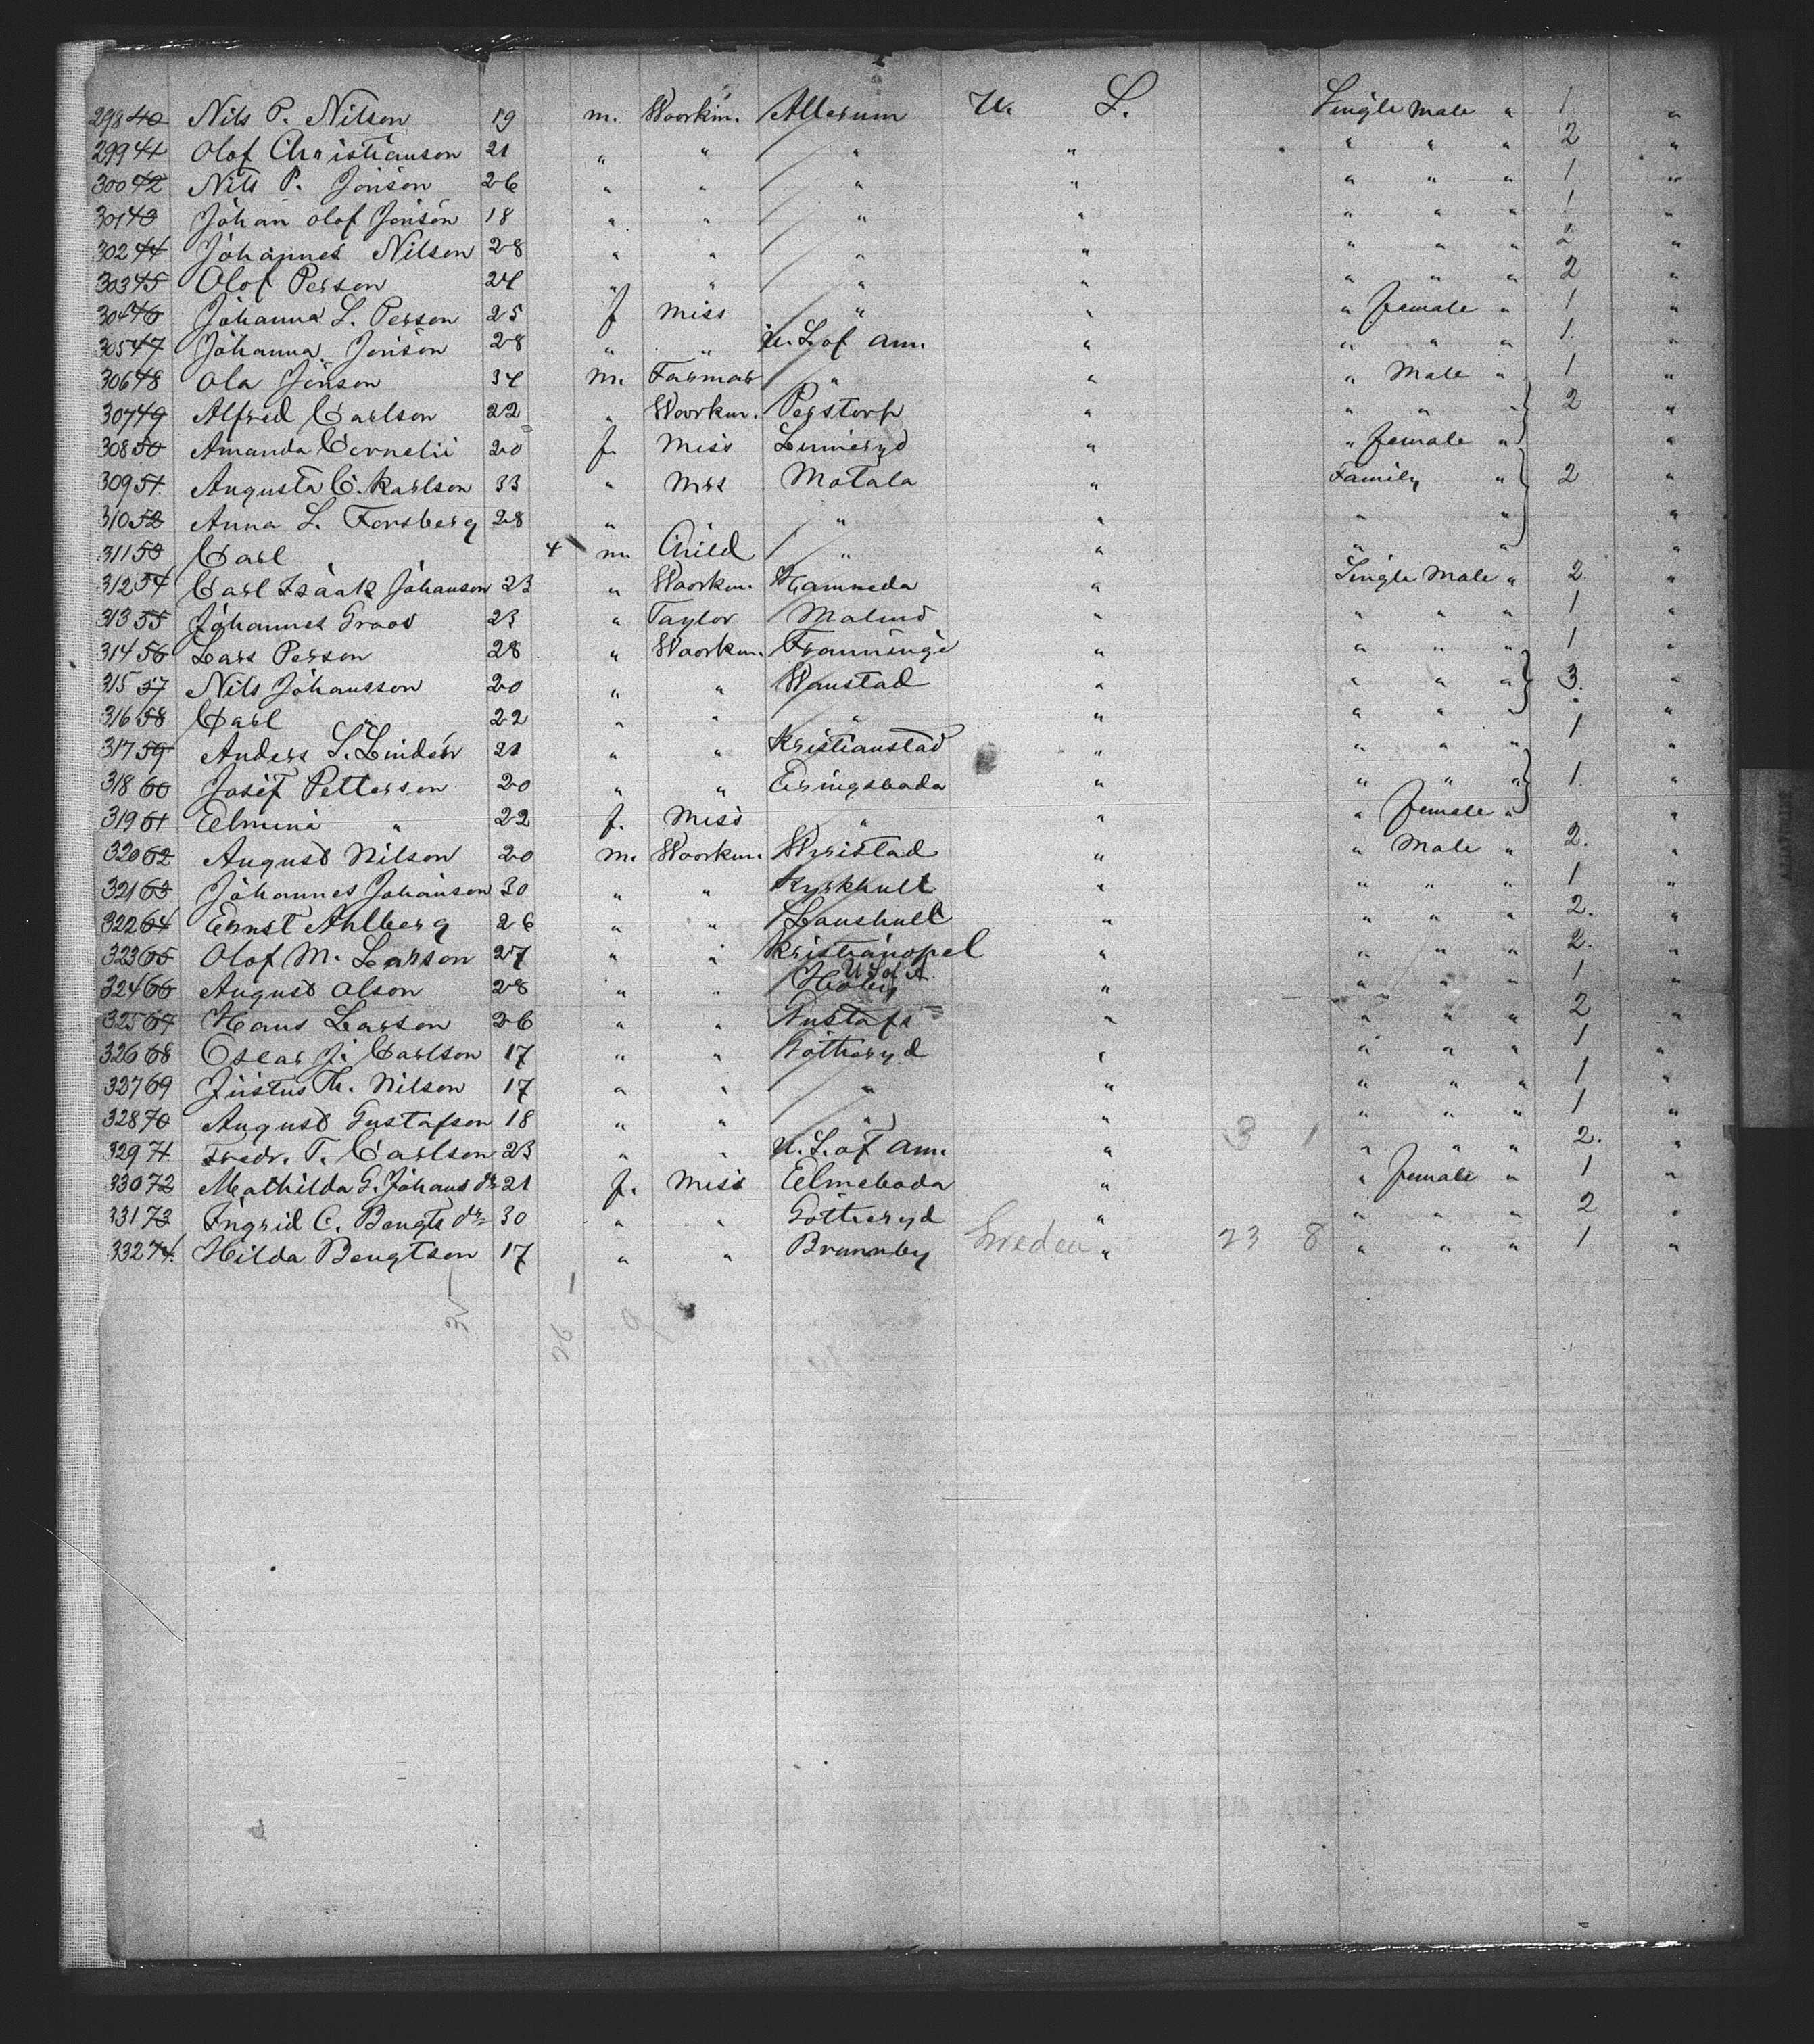 298 40 Nils P. Nilson 19 m. Woorkm. Allerum U. S. Single Male " 1 "
299 41 Olof Christianson 21 " " " " " " " 2 "
300 42 Nils P. Jönson 26 " " " " " " " 1 "
301 43 Johan Olof Jönson 18 " " " " " " " 1 "
302 44 Johannes Nilson 28 " " " " " " " 2 "
303 45 Olof Person 24 " " " " " " " 2 "
304 46 Johanna L. Person 25 f Miss " " " female " 1 "
305 47 Johanna Jönson 28 " " U. S. of Am. " " " " 1. "
306 48 Ola Jönson 34 m. Farmar " " " Male " 1 "
307 49 Alfred Carlson 22 " Woorkm. Perstorp " " " " 2 "
308 50 Amanda Cornelii 20 f. Miss " " female " "
309 51. Augusta C. Karlson 33 " Mrs Motala " Family " 2 "
310 52 Anna L. Forsberg 28 " " " " " "
311 53 Carl 4 m Child " " " " "
312 54 Carl Isaak Johanson 23 " Woorkm. Hamneda " Single Male " 2. "
313 55 Johannes Groos 23 " Taylor Malmö " " " " 1 "
314 56 Lars Person 28 " Woorkm. " " " " 1 "
315 57 Nils Johansson 20 " " Wanstad " " " " 3. "
316 58 Carl " 22 " " " " " " " "
317 59 Anders S. Lindén 21 " " Kristianstad " " " " 1 "
318 60 Josef Petterson 20 " " Eringsboda " " " " 1. "
319 61 Elmina " 22 f. Miss " " " female " "
320 62 August Nilson 20 m. Woorkm. Wyristad " " Male " 2. "
321 63 Johannes Johanson 30 " " Kyrkhult " " " " 1 "
322 64 Ernst Ahlberg 26 " " Loushult " " " " 2. "
323 65 Olof M. Larson 27 " " Kristianopel " " " " 2. "
324 66 August Olson 28 " " Hoby U S of A. " " " " 1 "
325 67 Hans Larson 26 " " Gustafs " " " " 2 "
326 68 Oscar J. Carlson 17 " " Götheryd " " " " 1 "
327 69 Justus Th. Nilson 17 " " " " " " " 1 "
328 70 August Gustafson 18 " " " " " " " 1 "
329 71. Fredr. T. Carlson 23 " " U. S. of Am. " 3 1 " " " 2. "
330 72 Mathilda G. Johans dr 21 f. Miss Elmeboda " " female " 1 "
331 73 Ingrid C. Bengts dr 30 " " Götheryd " " " " 2 "
332 74. Hilda Bengtson 17 " " Brannby Sweden " 23 8 " " " 1 "